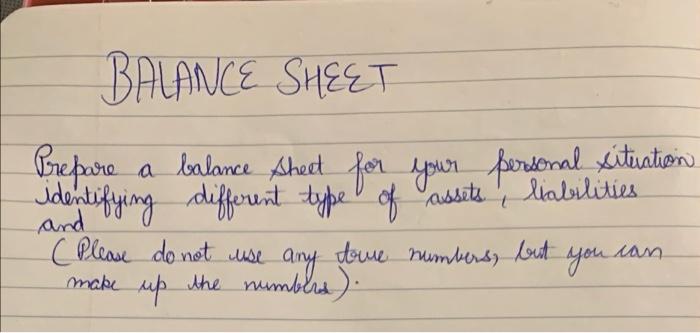 BALANCE SHEET
Prepare a balance sheet for your personal situation
identifying different type of assets, liabilities
and
(Please do not use any true numbers, but you can
make up the numbers).